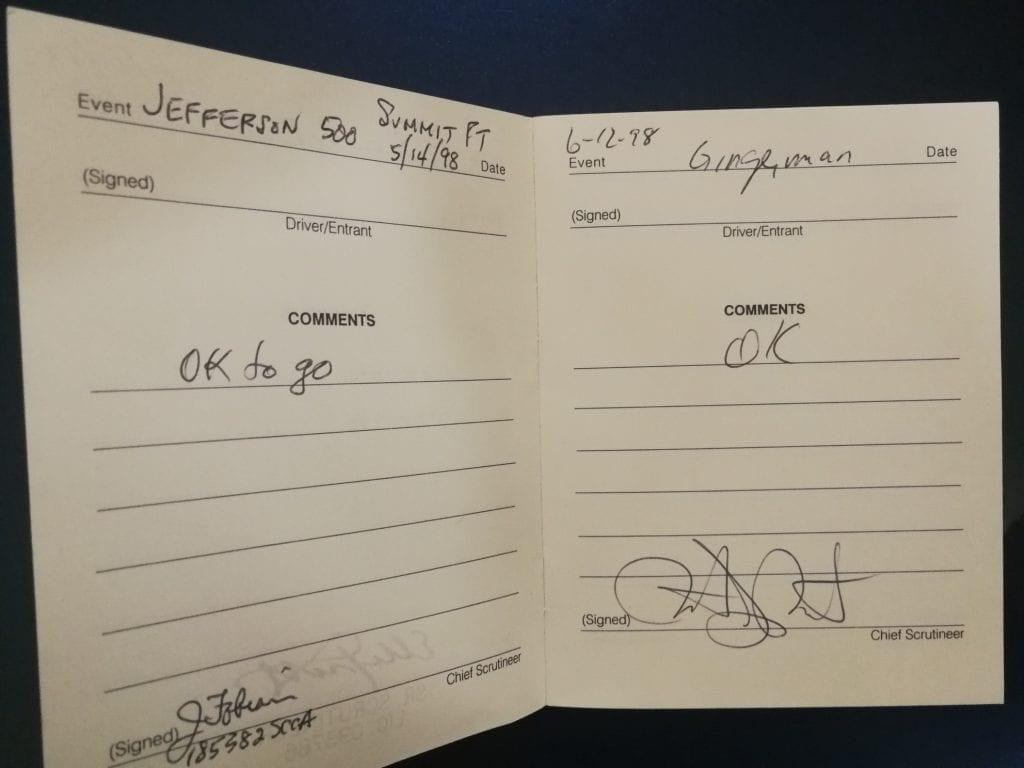 Event JEFFERSON 500 SUMMIT PT
5/14/98 Date
(Signed)
Driver/Entrant
COMMENTS
OK to go
Chief Scrutineer
(Signed)
185382 SCCA
6-12-98
Event Gingerman Date
(Signed)
Driver/Entrant
COMMENTS
OK
(Signed)
Chief Scrutineer